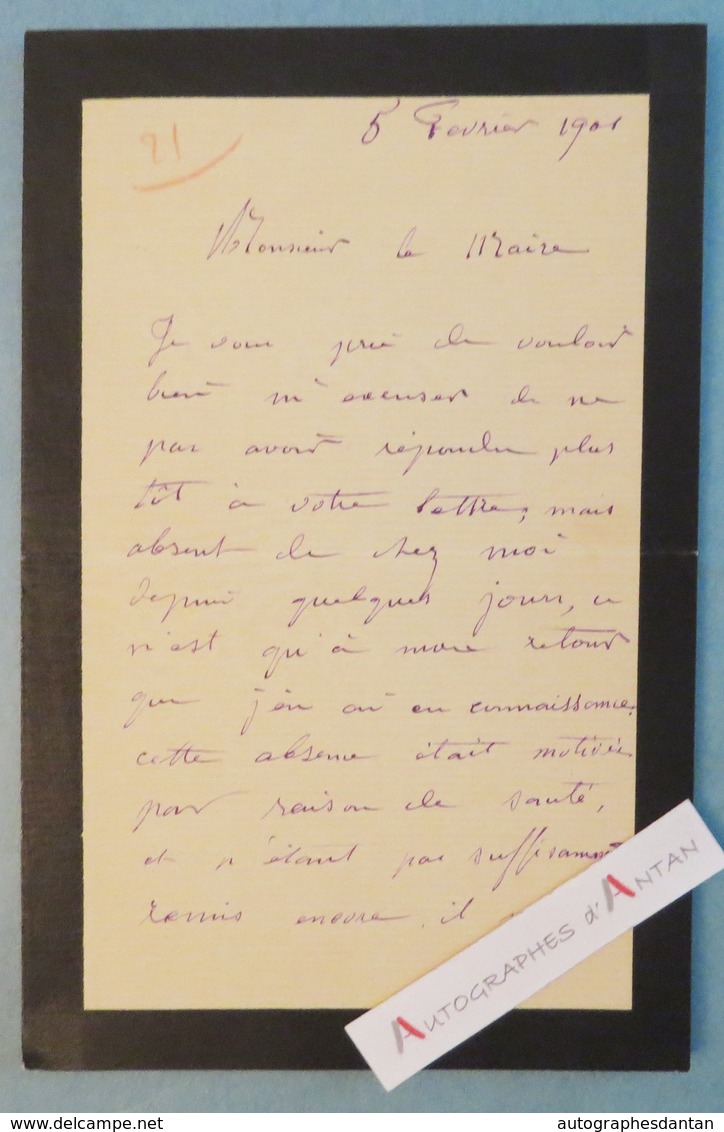 21
5 Fevrier 1901
Monsieur le Maire
Je vous prie de vouloir
bien m'excuser de ne
pas avoir répondu plus
tôt à votre lettre; mais
absent de chez moi
depuis quelques jours, ce
n'est qu'à mon retour
que j'en ai eu connaissance.
cette absence était motivée
par raison de santé,
et n'étant pas suffisamment
remis encore, il
AUTOGRAPHES d'ANTAN
www.delcampe.net
autographesdantan